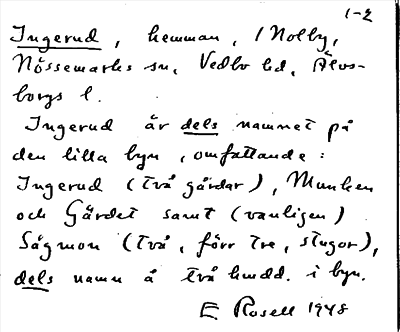 1-2
Ingerud, hemman, / Nolby,
Nössemarks sn, Vedbo hd, Älvs-
borgs l.
Ingerud är dels namnet på
den lilla byn, omfattande:
Ingerud (två gårdar), Munken
och Gärdet samt (vanligen)
Sågmon (två, förr tre, stugor),
dels namn å två hmdd. i byn.
E Rosell 1948